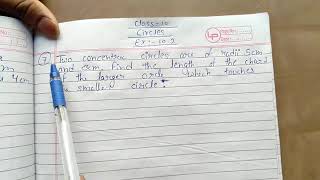 Class-10
Circles
Ex:- 10.2
(7) Two concentric circles are of radii 5cm
and 3cm. Find the length of the chord
of the larger circle which touches
smaller circle.